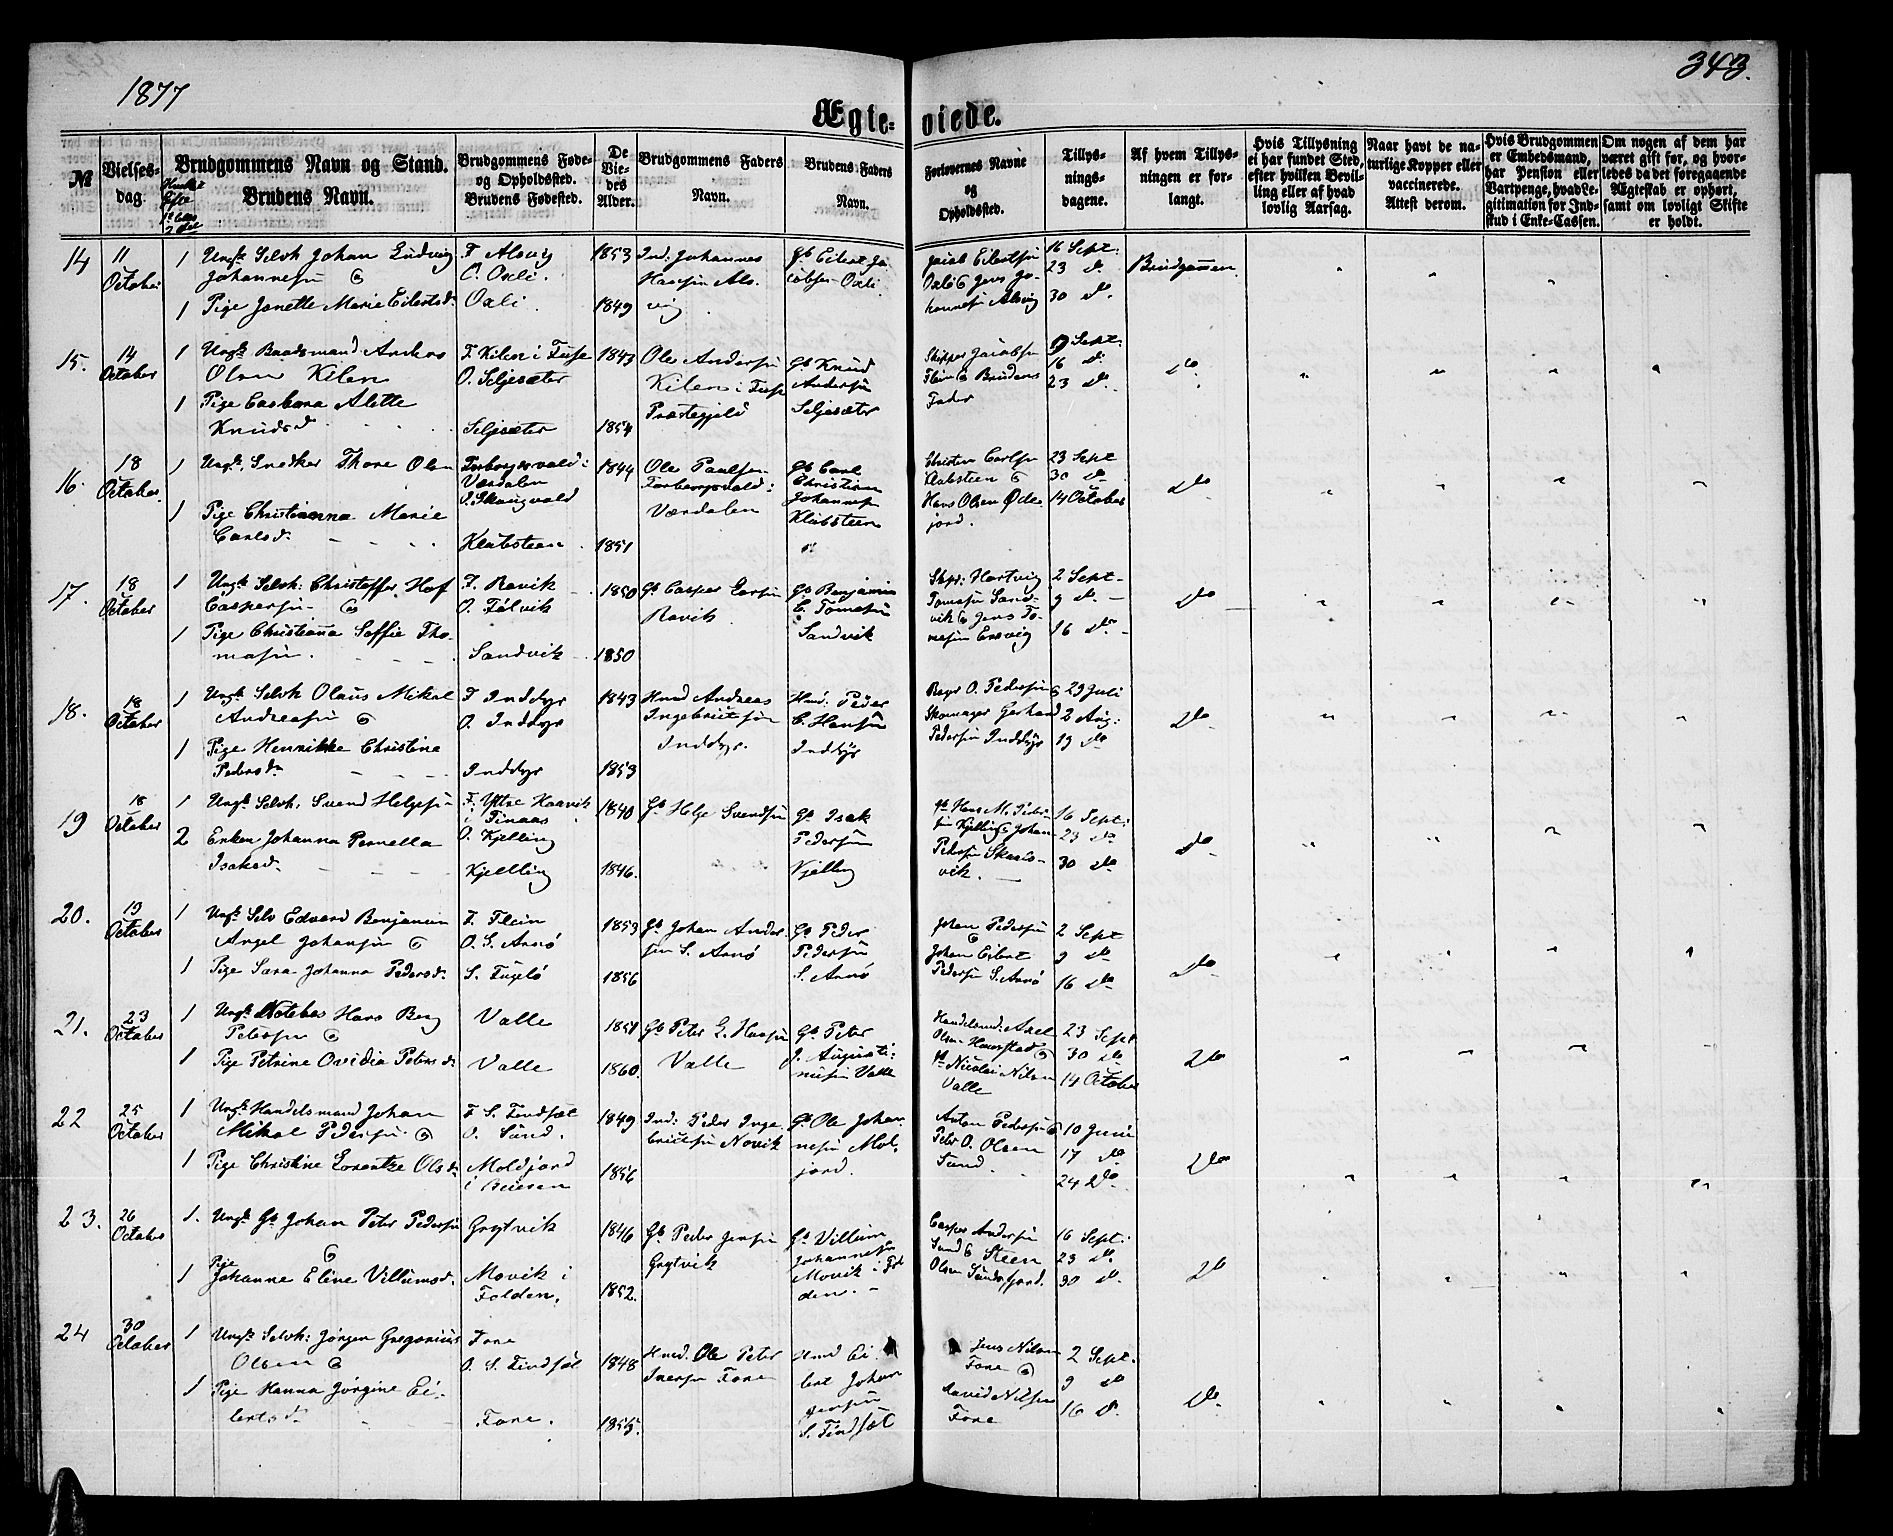 1877
343.
Ægte-
viede.
№
Vielses-
dag
Brudgommens Navn og Stand.
Brudens Navn.
Brudgommens Føde-
og Opholdssted.
Brudens Fødested.
De
Vie-
des
Alder.
Brudgommens Faders
Navn.
Brudens Faders
Navn.
Forlovernes Navne
og
Opholdssted.
Tillys-
nings-
dagene.
Af hvem Tillys-
ningen er for-
langt.
Hvis Tillysning
ei har fundet Sted,
efter hvilken Bevil-
ling eller af hvad
lovlig Aarsag.
Naar havt de na-
turlige Kopper eller
vaccinerede.
Attest derom.
Hvis Brudgommen
er Embedsmand,
har Pension eller
Vartpenge, hvad Le-
gitimation for Ind-
skud i Enke-Cassen.
Om nogen af dem har
været gift før, og hvor-
ledes da det foregaaende
Ægteskab er ophørt,
samt om lovligt Skifte
er holdt.
14
11
October
1 Ungk Selvh Johan Ludvig
Johannesen
1 Pige Janette Marie Eilertsd.
F. Alsvig
O. Oxli.
Oxli
1853
1849
Ind. Johannes
Hansen Als-
vig
Gb Eilert Ja-
cobsen Oxli
Jacob Eilertsen
Oxli & Jens Jo-
hannesen Alsvig
16 Sept:
23 do
30 do
Brudgommen
15.
14
October
1 Ungk Baadsmand Anders
Olsen Kilen
1 Pige Casbara Alette
Knudsd
F. Kilen i Fuse
O. Seljesæter
Seljesæter
1843
1854
Ole Andersen
Kilen i Fuse
Præstegjeld
Gb Knud
Andersen
Seljesæter
Skipper Jacobsen
Flein & Brudens
Fader
9 Sept:
16 do
23 do
do
16.
18
October
1 Ungk. Snedker Thore Olsen
1 Pige Christianna Marie
Carlsd.
Værdalen
O. Skaugvold
Klubsteen
1844
1851
Ole Paulsen
Værdalen
Gb Carl
Christian
Johannesen
Klubsteen
Christen Carlsen
Klubsteen &
Hans Olsen Øde-
jord.
23 Sept
30 do
14 October
do
17.
18
October
1 Ungk Selvh: Christoffer Hof
Caspersen &
1 Pige Christianna Soffie Tho-
masen.
F. Ravik
O. Følvik
Sandvik
1850
1850
Gb Casper Larsen
Ravik
Gb Benjamin
C. Tomesen
Sandvik
Skpr: Hartvig
Tomesen Sand-
vik & Jens To-
mesen Ersvig
2 Sept
9 do
16 do
do
18.
18
October
1 Ungk Selvh Olaus Mikal
Andreasen &
1 Pige Henrikke Christine
Pedersd.
F Inddyr
O. Inddyr
Inddyr
1843
1853
Hmd Andreas
Ingebrietsen
Inddyr.
Hmd: Peder
C. Hansen
Inddyr
O. Pedersen &
Skomager Gerhard
Pedersen Inddyr
29 Juli
2 Aug:
19 do
do
19
18
October
1 Ungk Selvh. Svend Helgesen
2 Enken Johanna Pernella
Isaksd.
F. Ytre Haavik
i Finaas
O. Kjelling
Kjelling
1840
1846.
Gb Helge Svendsen
Gb Isak
Pedersen
Kjelling
Gb Hans M. Peder-
sen Kjelling & Johan
Pedersen Skaus-
vik.
16 Sept:
23 do
30 do
do
20.
19
October
1 Ungk Selv Edvard Benjamin
Angel Johansen &
1 Pige Sara Johanna Pedersd.
F. Flein
O. S. Arnö
S. Fugelö
1853
1856
Gb Johan Ander-
sen S. Arnö
Gb Peder
Pedersen
S. Arnö
Johan Pedersen
&
Johan Eilert
Pedersen S. Arnö
2 Sept
9 do
16 do
do
21.
23
October
1 Ungk Notebas Hans Berg
Petersen &
1 Pige Petrine Ovidia Petersd.
Valle
Valle
1851
1860.
Gb Peter L. Hansen
Valle
Gb Peter
J. Augusti-
nusen Valle
Handelsmd: Axel
Olsen Haurstad &
Gb Nicolai Nilsen
Valle
23 Sept
30 do
14 October
do
22
25
October
1 Ungk Handelsmand Johan
Mikal Pedersen &
1 Pige Christine Lorentze Olsd.
F S. Findsæt
O. Sund.
Moldjord
i Beieren
1849
1856
Ind: Peder Inge-
brietsen Novik
Gb Ole Johan-
nesen Mol-
jord.
Anton Pedersen &
Peter O. Olsen
Sund.
10 Juni
17 do
24 do
do
23.
26
October
1. Ungk Gb Johan Peter Pedersen
&
Pige
1 Johanne Eline Villumsd.
Grytvik
Movik i
Folden.
1846
1852.
Gb Peder Jensen
Grytvik
Gb Villum
Johannesen
Movik i Fol-
den.
Casper Andersen
Sund & Steen
Olsen Sandsfjord.
16 Sept:
23 do
30 do
do
24
30
October
1 Ungk Selvh: Jørgen Gregorius
Olsen &
1 Pige Hanna Jørgine Ei-
lertsd.
Fore
O. S. Findsæt
Fore.
1848
1855.
Hmd. Ole Peter
Iversen Fore
Hmd Ei-
lert Johan
Jensen
S. Findsæt
Jens Nilsen
Fore &
David Nilsen
Fore
2 Sept.
9 do
16 do
do